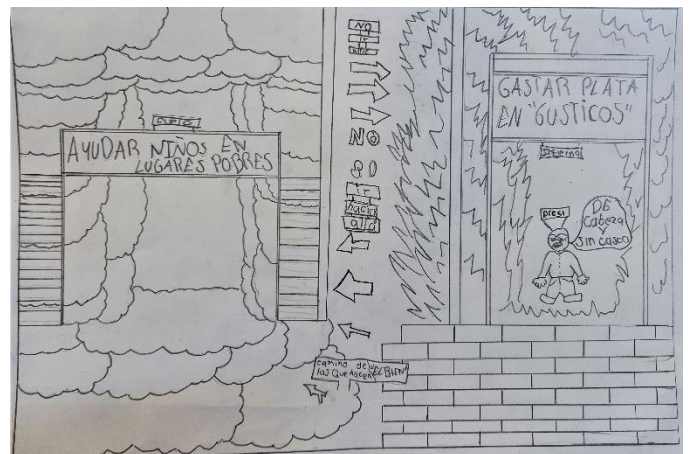 cielo
AYUDAR NIÑOS EN
LUGARES POBRES
NO
ir
NO
SI
ir
hacia
alla
camino de
los que hacen
EL BIEN
GASTAR PLATA
EN "GUSTICOS"
infierno
presi
DE
Cabeza
y
sin casco